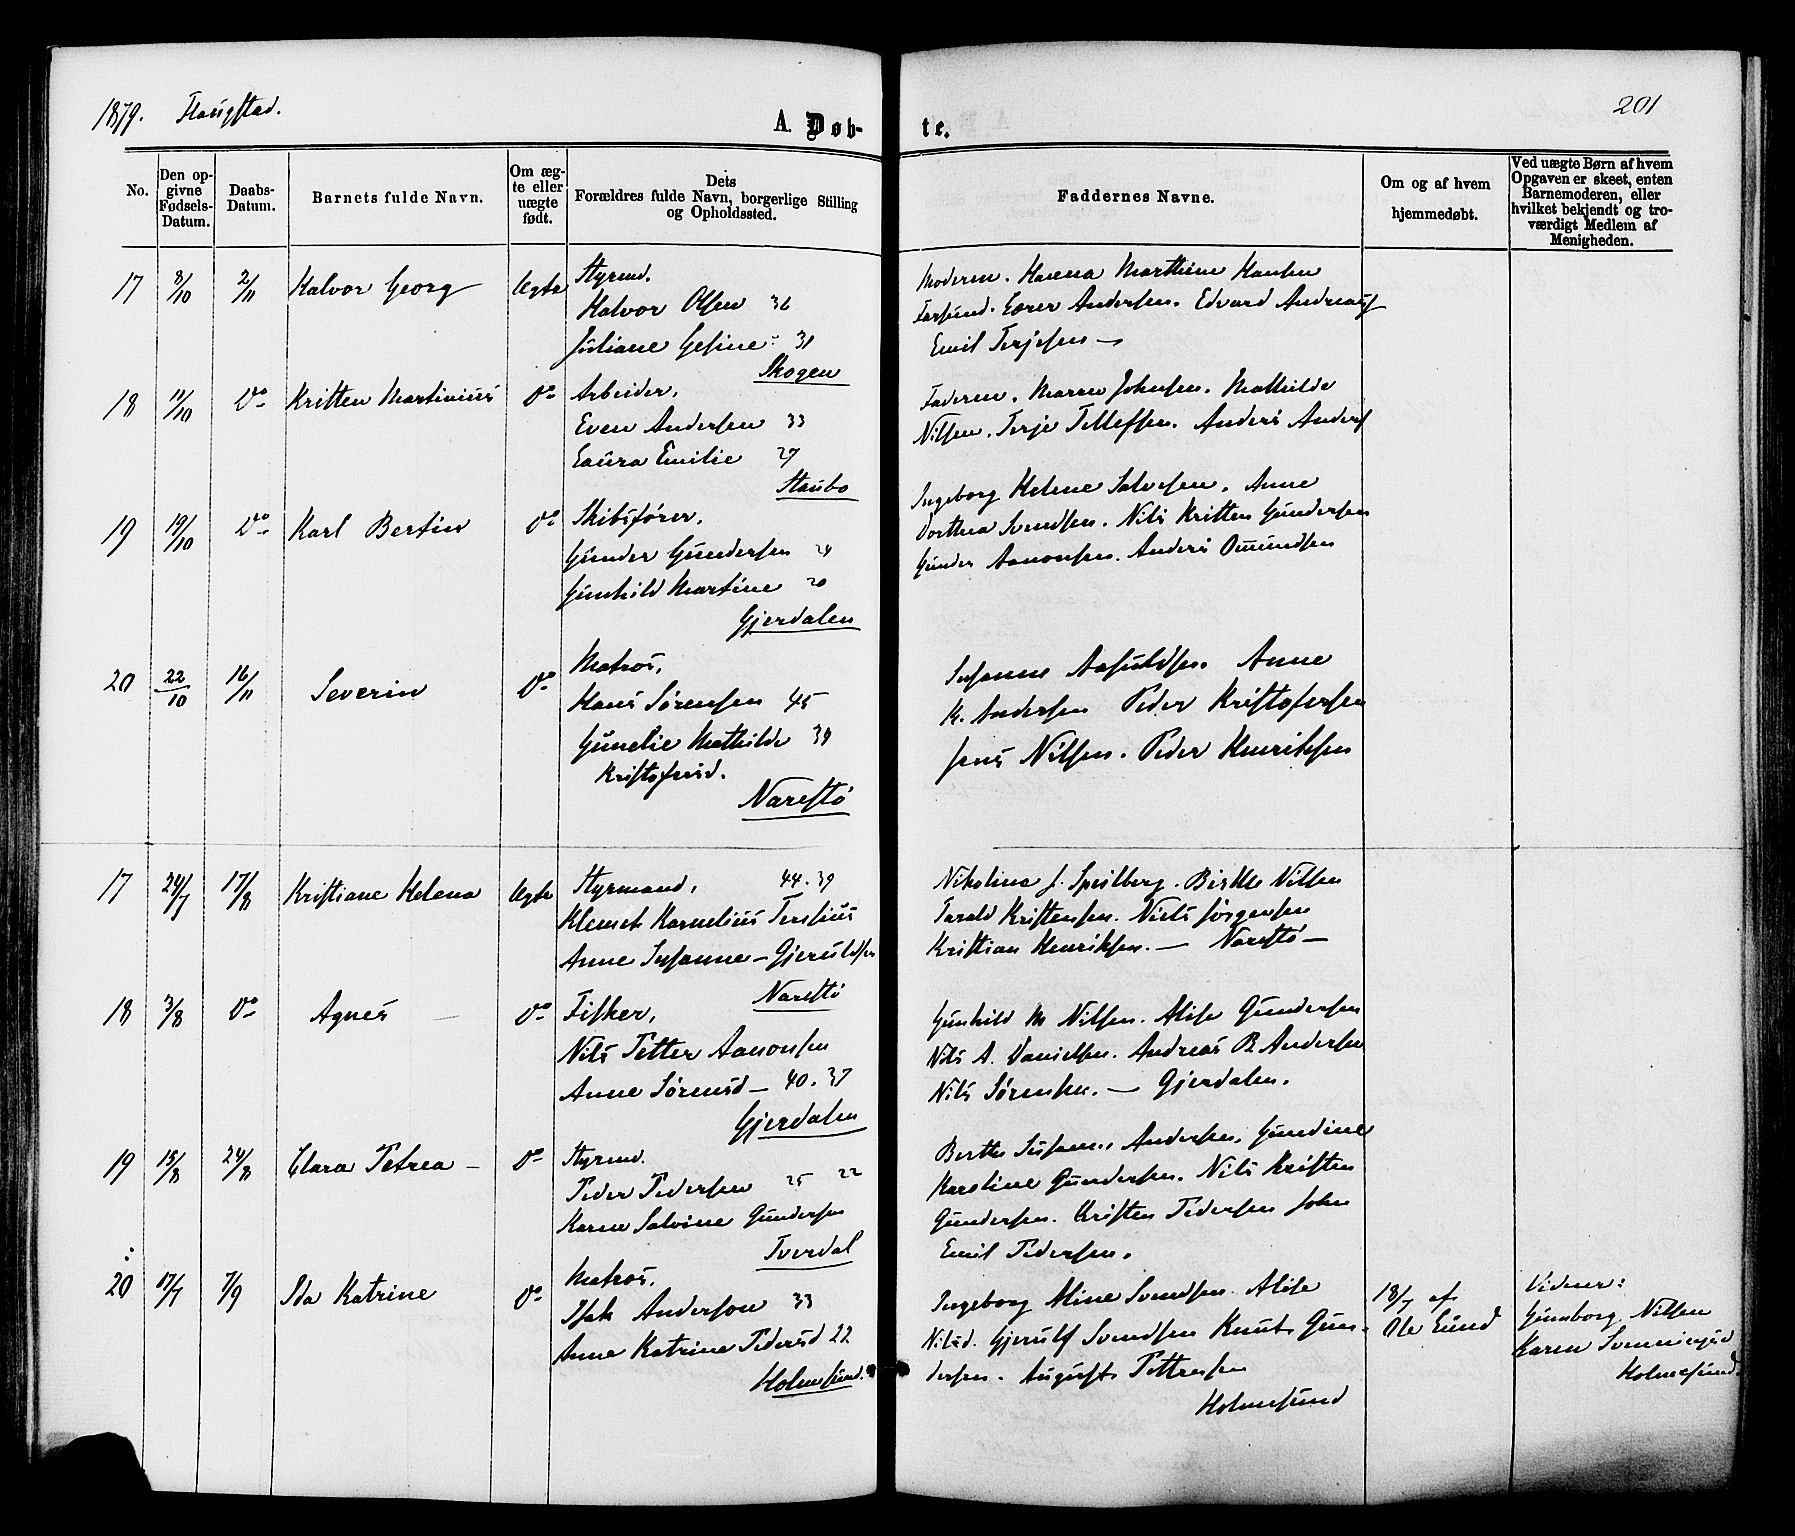 1879. Flangstad.
201
A. Døb-
te.
No.
Den op-
givne
Fødsels-
Datum.
Daabs-
Datum.
Barnets fulde Navn.
Om æg-
te eller
uægte
født.
Dets
Forældres fulde Navn, borgerlige Stilling
og Opholdssted.
Faddernes Navne.
Om og af hvem
hjemmedøbt.
Ved uægte Børn af hvem
Opgaven er skeet, enten
Barnemoderen, eller
hvilket bekjendt og tro-
værdigt Medlem af
Menigheden.
17 8/10 2/11 Halvor Georg Ægte Styrmd.
Halvor Olsen 36
Juliane Gesine 31
Skogen
Moderen. Hanna Marthine Hansen
Farsund. Edvard Andreas
Emil Terjesen —
18 11/10 Do Kritten Martinius Do Arbeider,
Even Andersen 33
Laura Emilie 27
Staubo
Faderen. Maren Johnsen. Mathilde
Nilsen. Terje Tellefsen. Anders Anders
19 19/10 Do Karl Bertin Do Skibsfører,
Gunder Gundersen 24
Gunhild Martine 20
Gjerdalen
Ingeborg Helene Salvesen. Anne
Dorthea Svendsen. Nils Kritten Gundersen
Gunder Aanonsen. Anders Omundsen
20 22/10 16/11 Severin Do Matros,
Hans Sørensen 45
Gunelie Mathilde 39
Kristofersd.
Narestø
Susanne Aasuldsen. Anne
K. Andersen Peder Kristofersen
Jens Nilsen. Peder Henriksen
17 24/7 17/8 Kristiane Helena Ægte Styrmand, 44. 39
Klemet Kornelius Tersius
Anne Susanne — Gjeruldsen
Narestø
Nikoline J. Speilberg. Nilsen
Tarald Kristensen. Niels Jørgensen
Kristian Henriksen. — Narestø —
18 3/8 Do Agnes — Do Fisker,
Nils Petter Aanonsen
Anne Sørensd — 40. 37
Gjerdalen
Gunhild M Nilsen. Alise Gundersen
Nils A. Danielsen. Andreas B. Andersen
Nils Sørensen. — Gjerdalen.
19 15/8 24/8 Clara Petrea — Do Styrmd.
Peder Pedersen 25 22
Karen Salvine Gundersen
Tverdal
Berthe Susanne Andersen, Gundine
Karoline Gundersen. Nils Kristen
Gundersen. Kristen Pedersen John
Emil Pedersen.
20 17/7 7/9 Ida Katrine Do Matros,
Isak Anderson 33
Anne Katrine Pedersd 22
Holmesund.
Ingeborg Mine Svendsen Alise
Nilsd. Gjerulf Svendsen Knut Gun-
dersen. August Pettersen
Holmesund
18/7 af
Ole Lund
Vidner:
Gunnborg Nilsen
Karen
Holmesund.